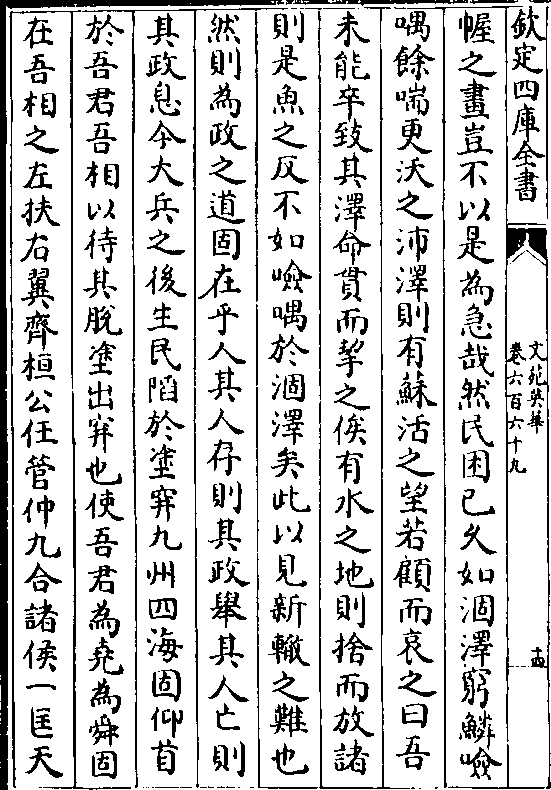 欽定四庫全書
文苑英華
卷六百六十九
十四
幄之畫豈不以是為急哉然民困已久如涸澤窮鱗噞
喁餘喘更沃之沛澤則有蘇活之望若顧而哀之曰吾
未能卒致其澤命貫而挈之俟有水之地則捨而放諸
則是魚之反不如噞喁於涸澤矣此以見新轍之難也
然則為政之道固在乎人其人存則其政舉其人亡則
其政息今大兵之後生民陷於塗穽九州四海固仰首
於吾君吾相以待其脫塗出穽也使吾君為堯為舜固
在吾相之左扶右翼齊桓公任管仲九合諸侯一匡天